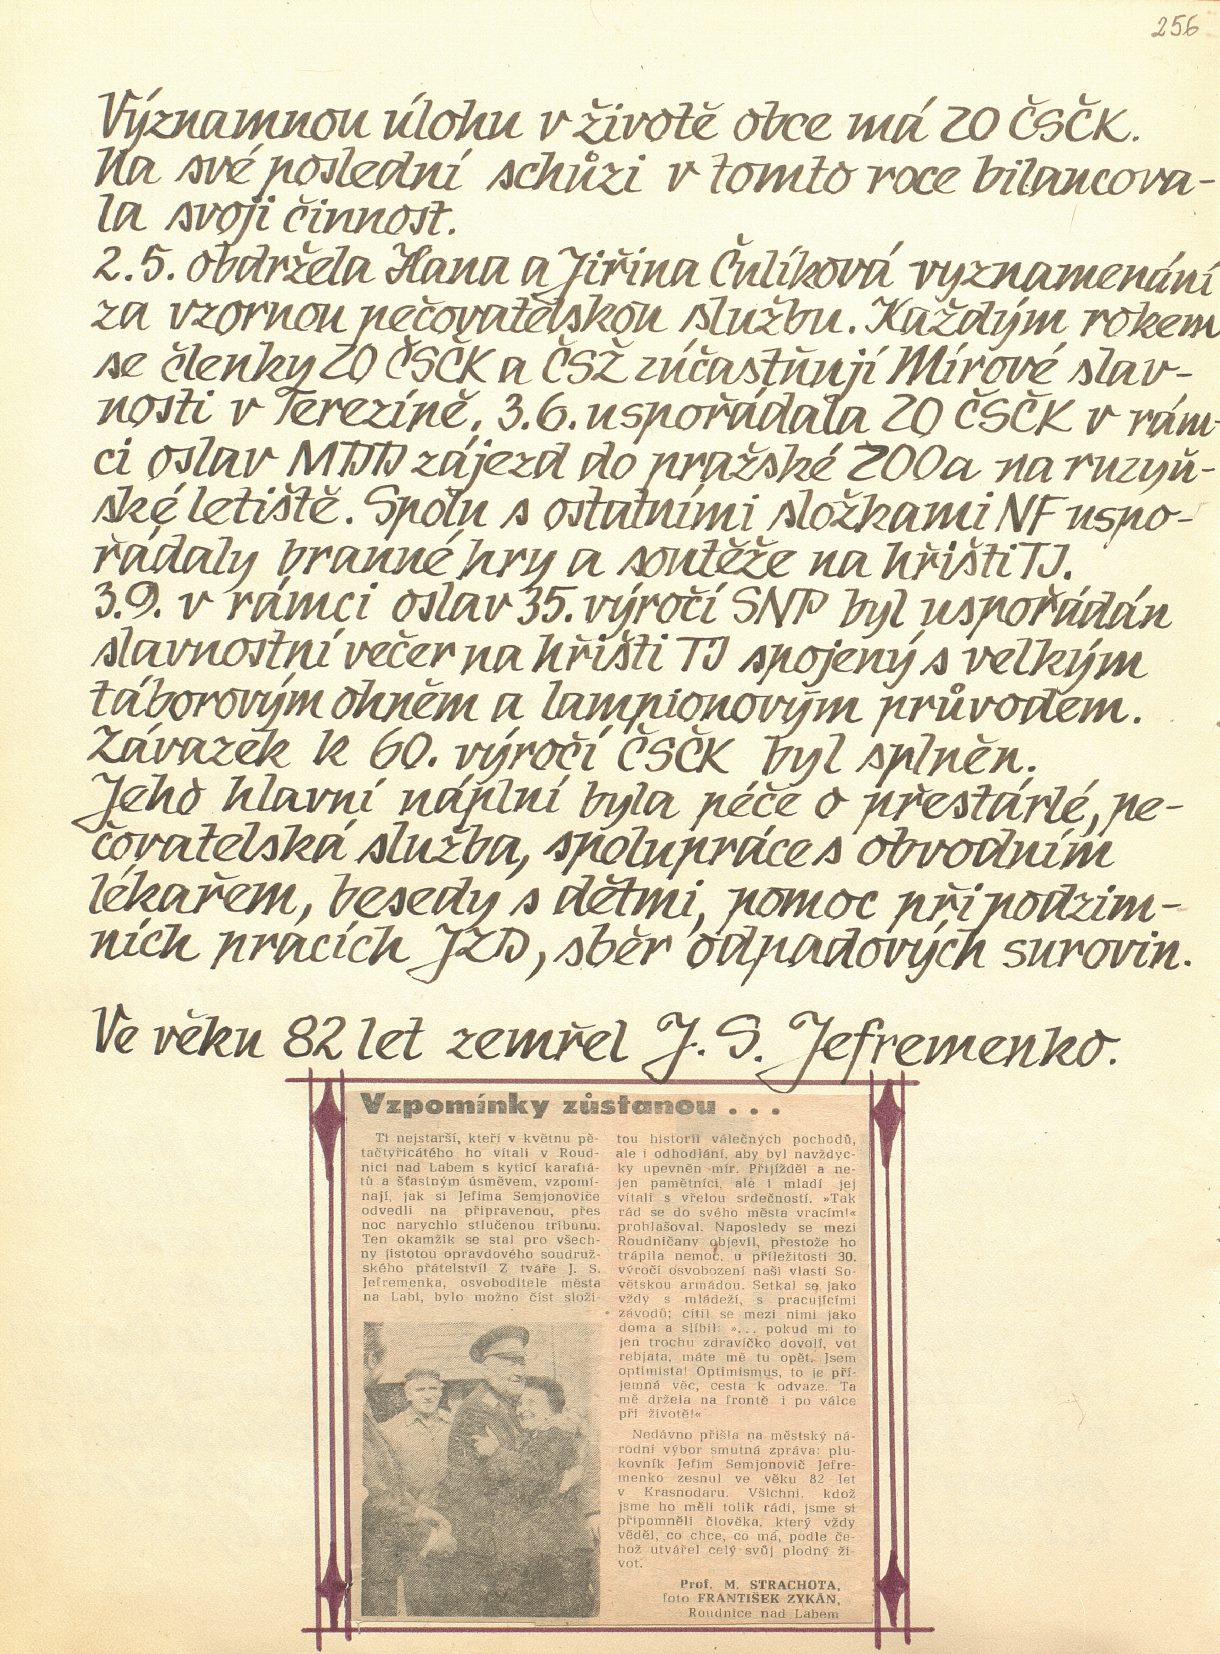 256
Významnou úlohu v životě obce má ZO ČSČK.
Na své poslední schůzi v tomto roce bilancova-
la svoji činnost.
2.5. obdržela Hana a Jiřina Čulíková vyznamenání
za vzornou pečovatelskou službu. Každým rokem
se členky ZO ČSČK a ČSŽ zúčastňují Mírové slav-
nosti v Terezíně. 3.6. uspořádala ZO ČSČK v rám-
ci oslav MDD zájezd do pražské ZOOa na ruzyň-
ské letiště. Spolu s ostatními složkami NF uspo-
řádaly branné hry a soutěže na hřišti TJ.
3.9. v rámci oslav 35. výročí SNP byl uspořádán
slavnostní večer na hřišti TJ spojený s velkým
táborovým ohněm a lampionovým průvodem.
Závazek k 60. výročí ČSČK byl splněn.
Jeho hlavní náplní byla péče o přestárlé, pe-
čovatelská služba, spolupráce s obvodním
lékařem, besedy s dětmi, pomoc při podzim-
ních pracích JZD, sběr odpadových surovin.
Ve věku 82 let zemřel J. S. Jefremenko.
Vzpomínky zůstanou . . .
Ti nejstarší, kteří v květnu pě-
tačtyřicátého ho vítali v Roud-
nici nad Labem s kyticí karafiá-
tů a šťastným úsměvem, vzpomí-
nají, jak si Jefima Semjonoviče
odvedli na připravenou, přes
noc narychlo stlučenou tribunu.
Ten okamžik se stal pro všech-
ny jistotou opravdového soudruž-
ského přátelství! Z tváře J. S.
Jefremenka, osvoboditele města
na Labi, bylo možno číst složi-
tou historii válečných pochodů,
ale i odhodlání, aby byl navždyc-
ky upevněn mír. Přijížděl a ne-
jen pamětníci, ale i mladí jej
vítali s vřelou srdečností. »Tak
rád se do svého města vracím!«
prohlašoval. Naposledy se mezi
Roudničany objevil, přestože ho
trápila nemoc, u příležitosti 30.
výročí osvobození naší vlasti So-
větskou armádou. Setkal se jako
vždy s mládeží, s pracujícími
závodů; cítil se mezi nimi jako
doma a slíbil: »... pokud mi to
jen trochu zdravíčko dovolí, vot
rebjata, máte mě tu opět. Jsem
optimista! Optimismus, to je pří-
jemná věc, cesta k odvaze. Ta
mě držela na frontě i po válce
při životě!«
Nedávno přišla na městský ná-
rodní výbor smutná zpráva: plu-
kovník Jefim Semjonovič Jefre-
menko zesnul ve věku 82 let
v Krasnodaru. Všichni, kdož
jsme ho měli tolik rádi, jsme si
připomněli člověka, který vždy
věděl, co chce, co má, podle če-
hož utvářel celý svůj plodný ži-
vot.
Prof. M. STRACHOTA,
foto FRANTIŠEK ZYKÁN,
Roudnice nad Labem